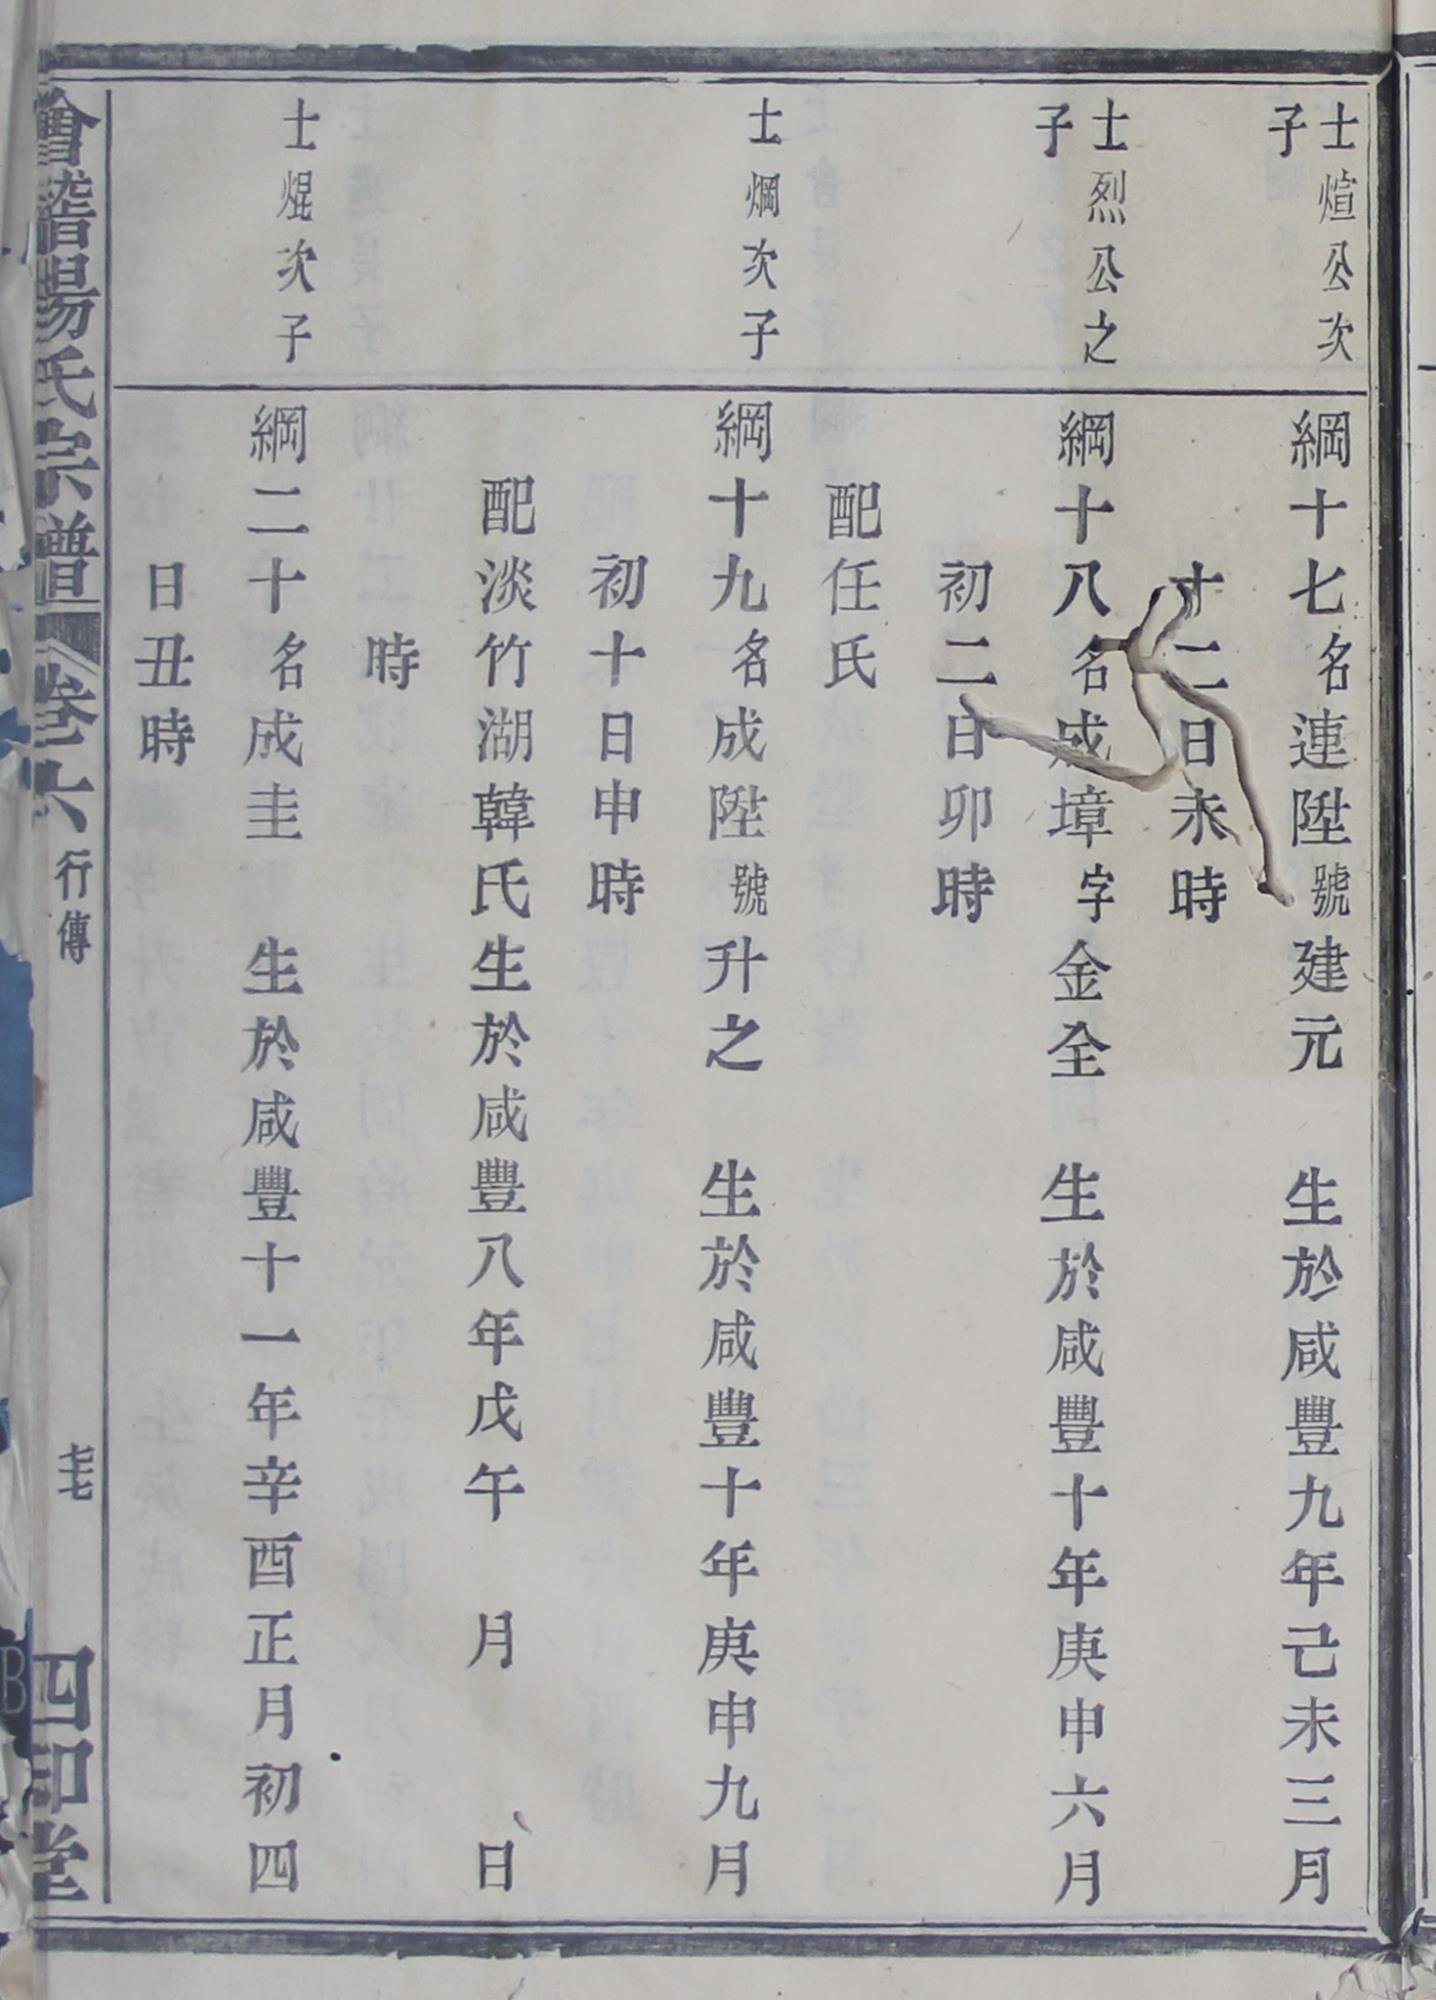 士煊公次
子
綱十七名連陞號建元　生於咸豐九年己未三月
十二日未時
士烈公之
子
綱十八名成墇字金全　生於咸豐十年庚申六月
初二日卯時
配任氏
士焵次子
綱十九名成陞號升之　生於咸豐十年庚申九月
初十日申時
配淡竹湖韓氏生於咸豐八年戊午　月　　日
時
士焜次子
綱二十名成圭　生於咸豐十一年辛酉正月初四
日丑時
會稽陽氏宗譜　卷六　行傳　四印堂
B